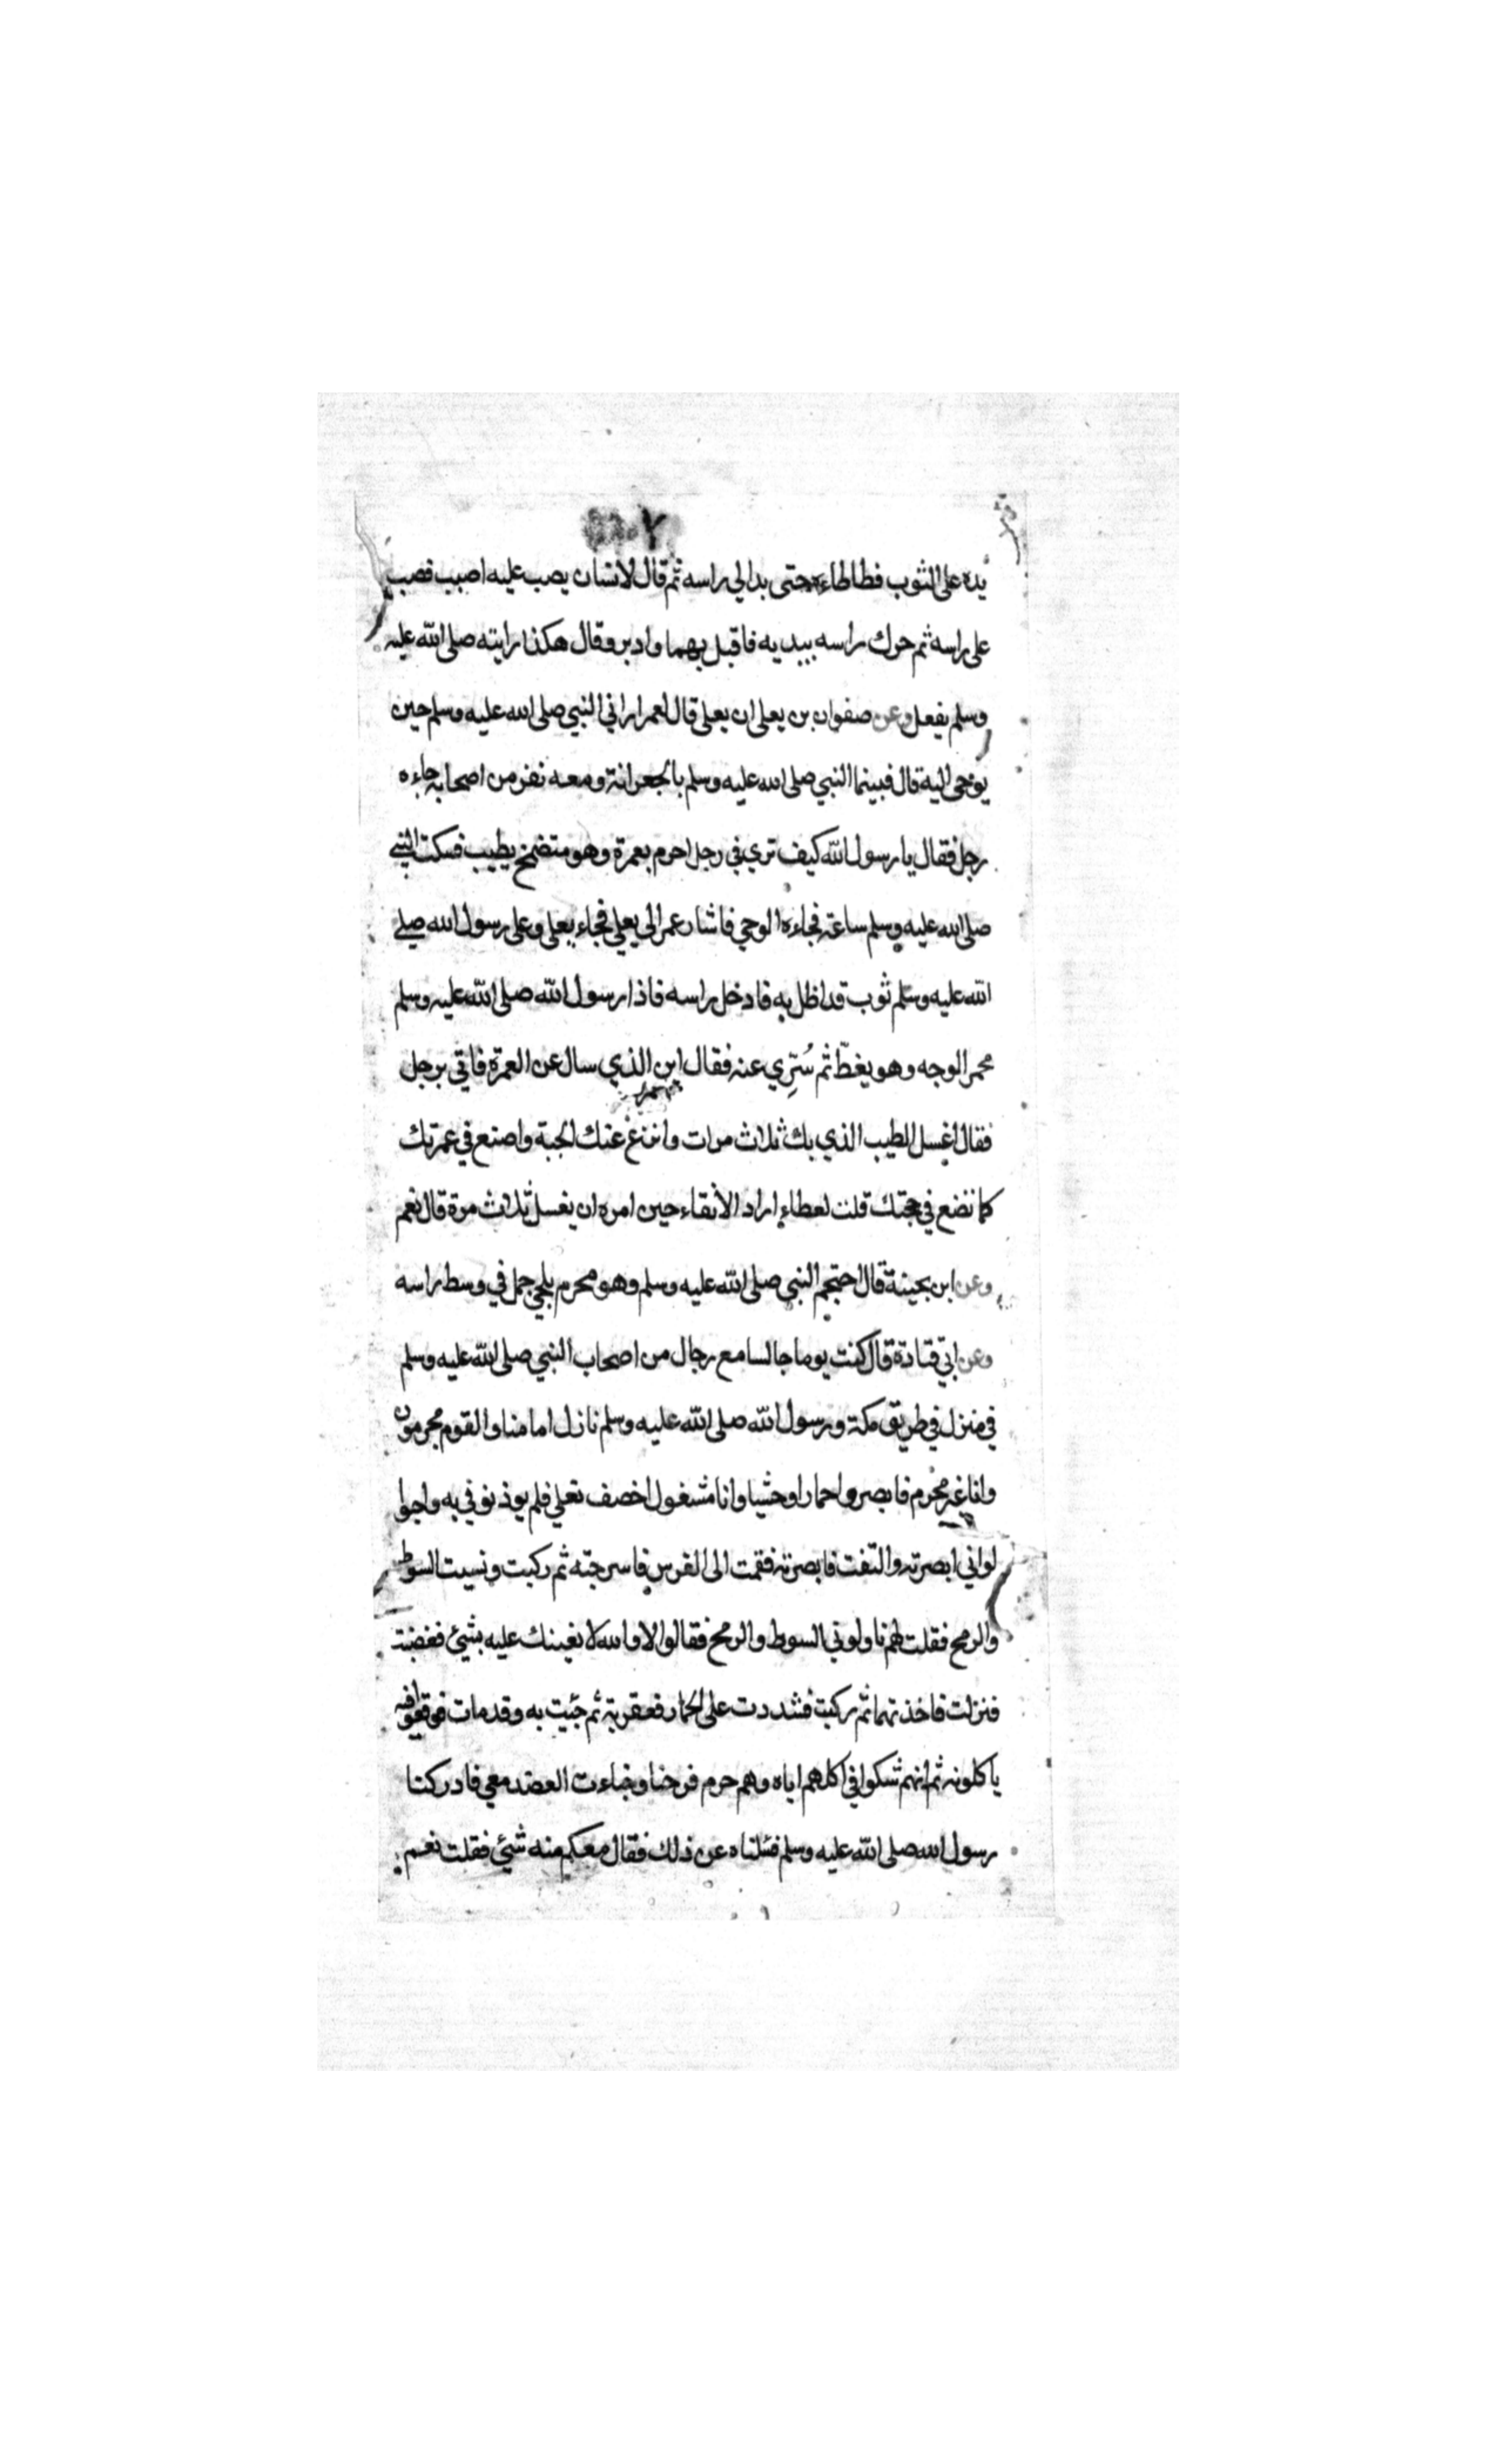 يده على الثوب فطاطاءه حتى بدالي راسه ثم قال لانسان يصب عليه اصبب فصب
على راسه ثم حرك راسه بيديه فاقبل بهما وادبر وقال هكذا رايته صلى الله عليه
وسلم يفعل وعن صفوان بن يعلى ان يعلى قال لعمر ارني النبي صلى الله عليه وسلم حين
يوحى اليه قال فبينما النبي صلى الله عليه وسلم بالجعرانة ومعه نفر من اصحابه جاءه
رجل فقال يا رسول الله كيف تري في رجل احرم بعمرة وهو متضمخ بطيب فسكت النبي
صلى الله عليه وسلم ساعة فجاءه الوحي فاشار عمر الى يعلي فجاء يعلى وعلى رسول الله صلى
الله عليه وسلم ثوب قد اظل به فادخل راسه فاذا رسول الله صلى الله عليه وسلم
محمر الوجه وهو يغطّ ثم سُرِّي عنه فقال اين الذي سال عن العمرة فاتي برجل
فقال اغسل الطيب الذي بك ثلاث مرات وانزع عنك الجبة واصنع في عمرتك
كما تضع في حجتك قلت لعطاء اراد الانقاء حين امره ان يغسل ثلاث مرة قال نعم
وعن ابن بحينة قال احتجم النبي صلى الله عليه وسلم وهو محرم بلحي جمل في وسط راسه
وعن ابي قتادة قال كنت يوما جالسا مع رجال من اصحاب النبي صلى الله عليه وسلم
في منزل في طريق مكة ورسول الله صلى الله عليه وسلم نازل امامنا والقوم محرمون
وانا غير محرم فابصروا حمارا وحشيا وانا مشغول اخصف نعلي فلم يوذنوني به واحبوا
لو اني ابصرته والتفت فابصرته فقمت الى الفرس فاسرجته ثم ركبت ونسيت السوط
والرمح فقلت لهم ناولوني السوط والرمح فقالوا لا والله لا نعينك عليه بشيئ فغضبت
فنزلت فاخذتهما ثم ركبت فشددت على الحمار فعقرته ثم جئيت به وقد مات فوقعوا فيه
ياكلونه ثم انهم شكوا في اكلهم اياه وهم حرم فرحنا وخباءت العضد معي فادركنا
رسول الله صلى الله عليه وسلم فسئلناه عن ذلك فقال معكم منه شيئ فقلت نعم